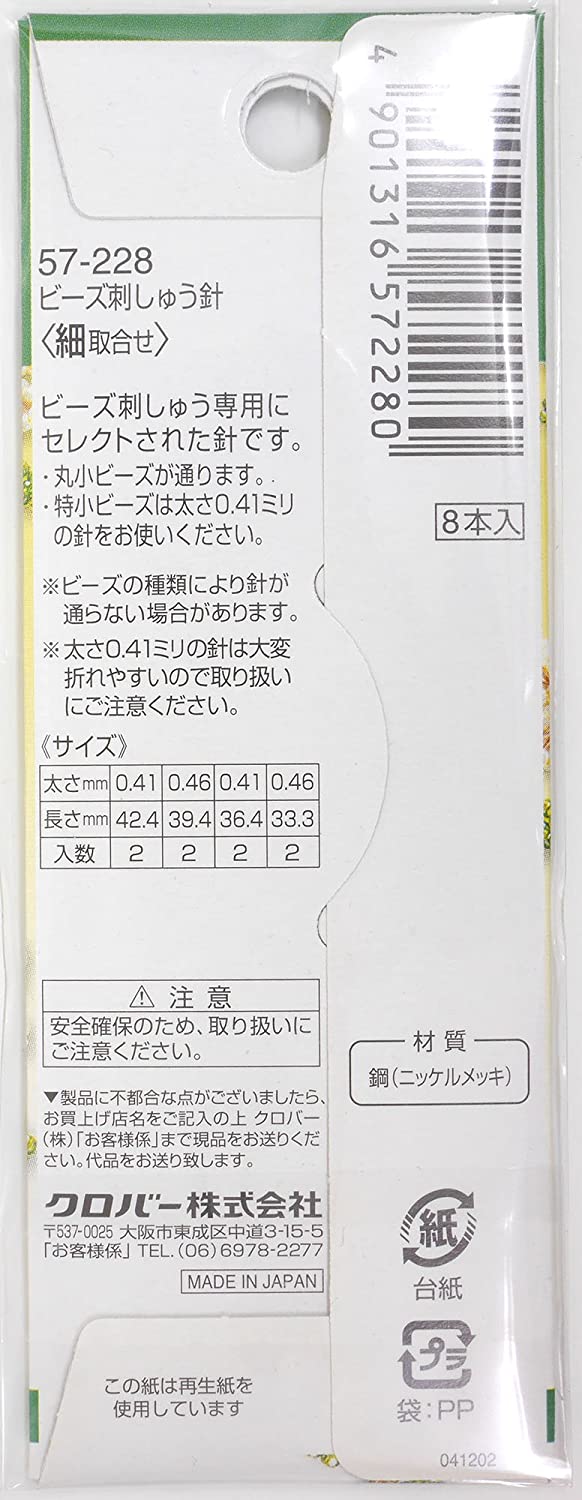 57-228
ビーズ刺しゅう針
〈細取合せ〉
ビーズ刺しゅう専用に
セレクトされた針です。
・丸小ビーズが通ります。
・特小ビーズは太さ0.41ミリ
の針をお使いください。
※ビーズの種類により針が
通らない場合があります。
※太さ0.41ミリの針は大変
折れやすいので取り扱い
にご注意ください。
《サイズ》
太さmm 0.41 0.46 0.41 0.46
長さmm 42.4 39.4 36.4 33.3
入数 2 2 2 2
⚠ 注意
安全確保のため、取り扱いに
ご注意ください。
▼製品に不都合な点がございましたら、
お買上げ店名をご記入の上 クロバー
(株)「お客様係」まで現品をお送りくだ
さい。代品をお送り致します。
クロバー株式会社
〒537-0025 大阪市東成区中道3-15-5
「お客様係」TEL.(06)6978-2277
MADE IN JAPAN
この紙は再生紙を
使用しています
4 901316 572280
8本入
材質
鋼(ニッケルメッキ)
紙
台紙
プラ
袋:PP
041202